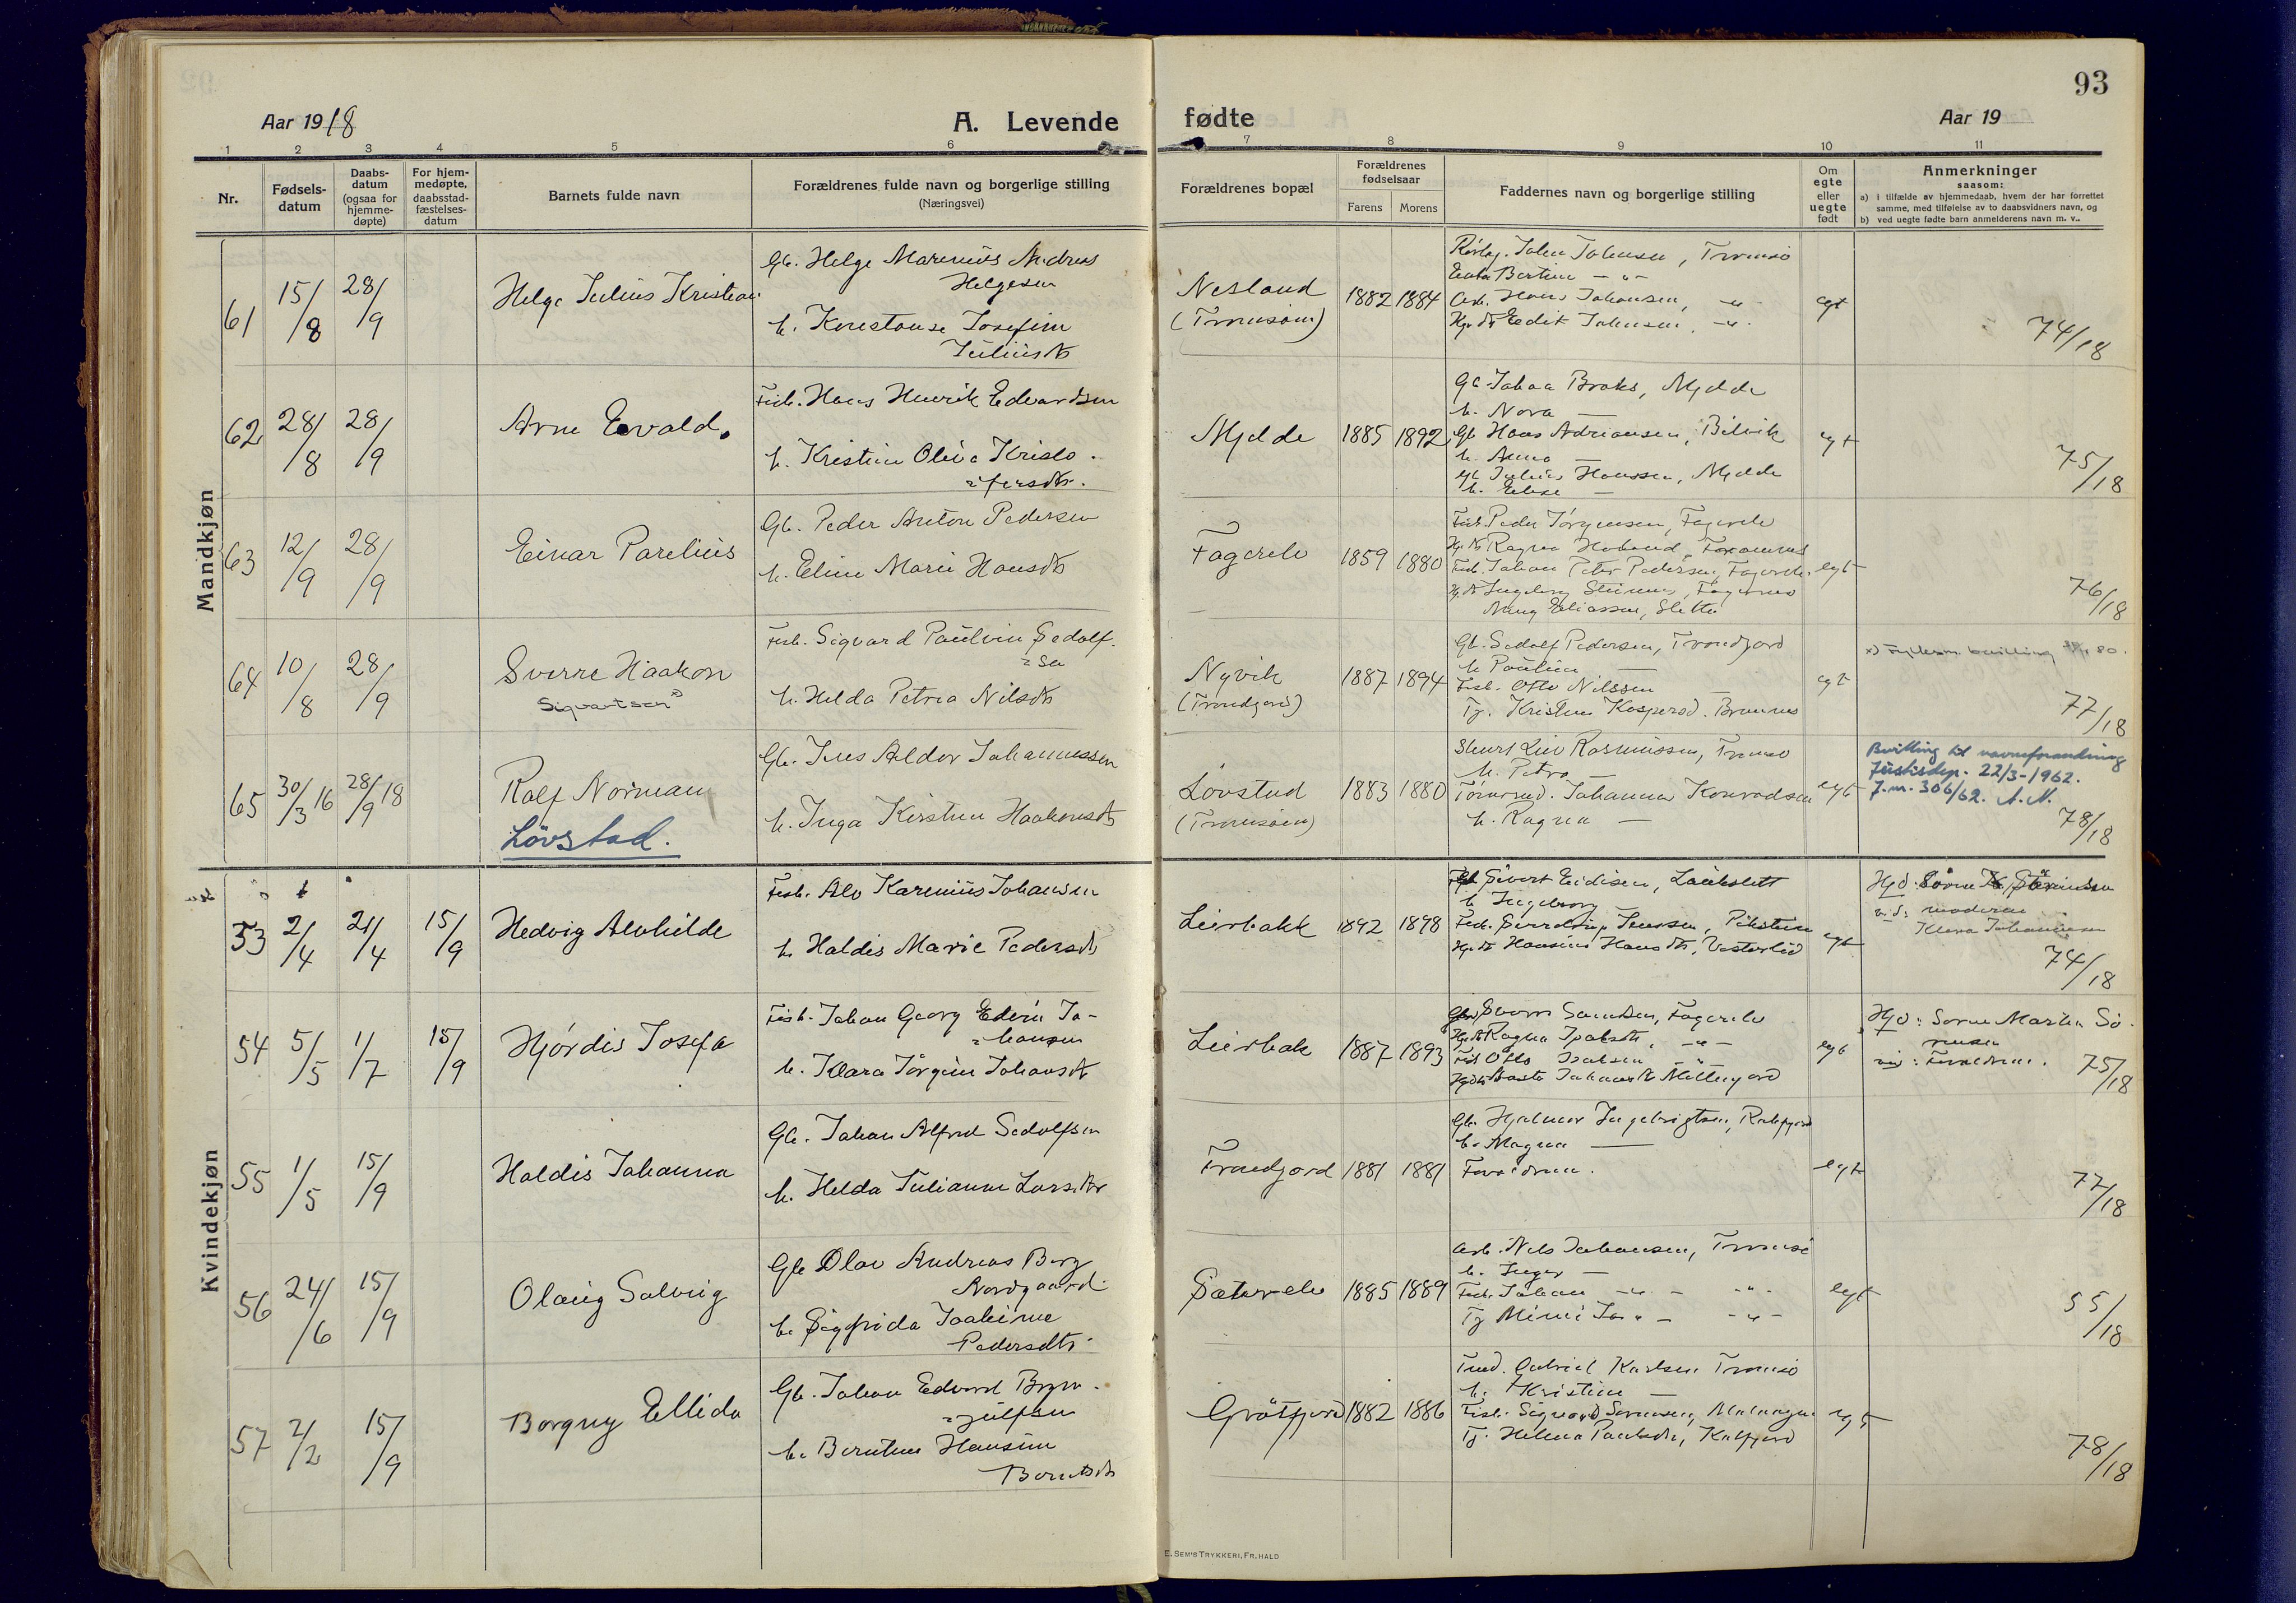 93
Aar 1918
A. Levende fødte
Aar 19
1 2 3 4 5 6 7 8 9 10 11
Nr.
Fødsels-
datum
Daabs-
datum
(ogsaa for
hjemme-
døpte)
For hjem-
medøpte,
daabsstad-
fæstelses-
datum
Barnets fulde navn
Forældrenes fulde navn og borgerlige stilling
(Næringsvei)
Forældrenes bopæl
Forældrenes
fødselsaar
Farens Morens
Faddernes navn og borgerlige stilling
Om
egte
eller
uegte
født
Anmerkninger
saasom:
a) i tilfælde av hjemmedaab, hvem der har forrettet
samme, med tilføielse av to daabsvidners navn, og
b) ved uegte fødte barn anmelderens navn m. v..
Mandkjøn
61 15/8 28/9
Helge Julius Kristian
Gb. Helge Marenius Andreas
Helgesen
h. Konstanse Josefine
Juliusdtr
Nesland
(Tromsøen)
1882 1884
Johan Johansen, Tromsø
Bertine - " -
Arb. Hans Johansen, - " -
Edit Johansen, - " -
egt
74/18
62 28/8 28/9
Arne Evald.
Fisk. Hans Henrik Edvardsen
h. Kristine Oliva Kristo-
fersdtr.
Mjelde
1885 1892
Gb. Johan Braks, Mjelde
h. Nora —
Gb Hans Adriansen, Bilvik
h. Anna —
Gb Julius Hanssen, Mjelde
h. Elise —
egt
75/18
63 12/9 28/9
Einar Parelius
Gb. Peder Anton Pedersen
h. Eline Marie Hansdtr
Fagerelv
1859 1880
Fisk. Peder Jørgensen, Fagerelv
Ragna
Fisk. Johan Peter Pedersen, Fagerelv.
Ingeborg Steinnes, Fagernes
Eliassen, Slettu
egt
76/18
64 10/8 28/9
Sverre Haakon
Sigvartsen x)
Fisk. Sigvard Paulvin Sedolf-
sen
h. Helda Petrea Nilsdtr
Nyvik
(Tromdjord)
1887 1894
Gb. Sedolf Pedersen, Tromdjord
h Pauline —
Fisk. Otto Nilssen —
Tj. Kristine Kaspersd.
egt
x) Fylkesm. bevilling 80.
77/18
65 30/3 16 28/9 18
Rolf Normann
Lövstad.
Gb. Jens Aldor Johannessen
h. Inga Kirstine Haakonsdtr
Lövstad
(Tromsøen)
1883 1880
Rasmussen, Tromsø
h. Petra —
Johannes Konradsen
h. Ragna —
egt
Bevilling til navneforandring
Justisdep. 22/3-1962.
J.nr. 306/62. A.N.
78/18
Kvindekjøn
53 2/4 21/4 15/9
Hedvig Alvhilde
Fisk. Alv Karenius Johansen
h Haldis Marie Pedersdtr
Leirbakk
1892 1898
Sivert Eidisen, Laukslett
h Ingeborg —
Fisk. Jenssen,
Hansine Hansdtr, Vasterlid
egt
Hjd: Sørine
v.d: moderen
Klara Johannesen
74/18
54 5/5 1/7 15/9
Hjørdis Josefa
Fisk. Johan Georg Edvin Jo-
hansen
h. Klara Jørgine Johansdtr
Leirbak
1887 1893
Fagerelv
Ragna - " -
Fisk Otto - " -
egt
Hjd: Sorine Marta Sö-
rensen
vid: Forældrene.
75/18
55 1/5 15/9
Haldis Johanna
Gb. Johan Alfred Sedolfsen
h. Helda Julianne Larsdtr
Tromdjord
1881 1881
Gb. Hjalmar Ingebrigtsen,
h. Magna —
Forældrene.
egt
77/18
56 24/6 15/9
Olaug Solveig
Gb Olav Andreas Berg
Nordgaard.
h. Sigfrida Joakime
Pedersdtr
Sæterelv
1885 1889
Arb. Nils Johansen, Tromsø
h. Inger —
Fisk. Johan - " - - " -
Tj Mimi - " -
egt
55/18
57 2/2 15/9
Borgny Ellida
Gb. Johan Edvard Bryn-
julfsen
h. Berntine Hansine
Berntsdtr
Grøtfjord
1882 1886
Gabriel Karlsen Tromsø
h. Kristine —
Fisk. Sigvard Sørensen, Malangen
Tj. Helena Paulsdtr, Kalfjord
egt
78/18
E. SEM'S TRYKKERI, FR. HALD